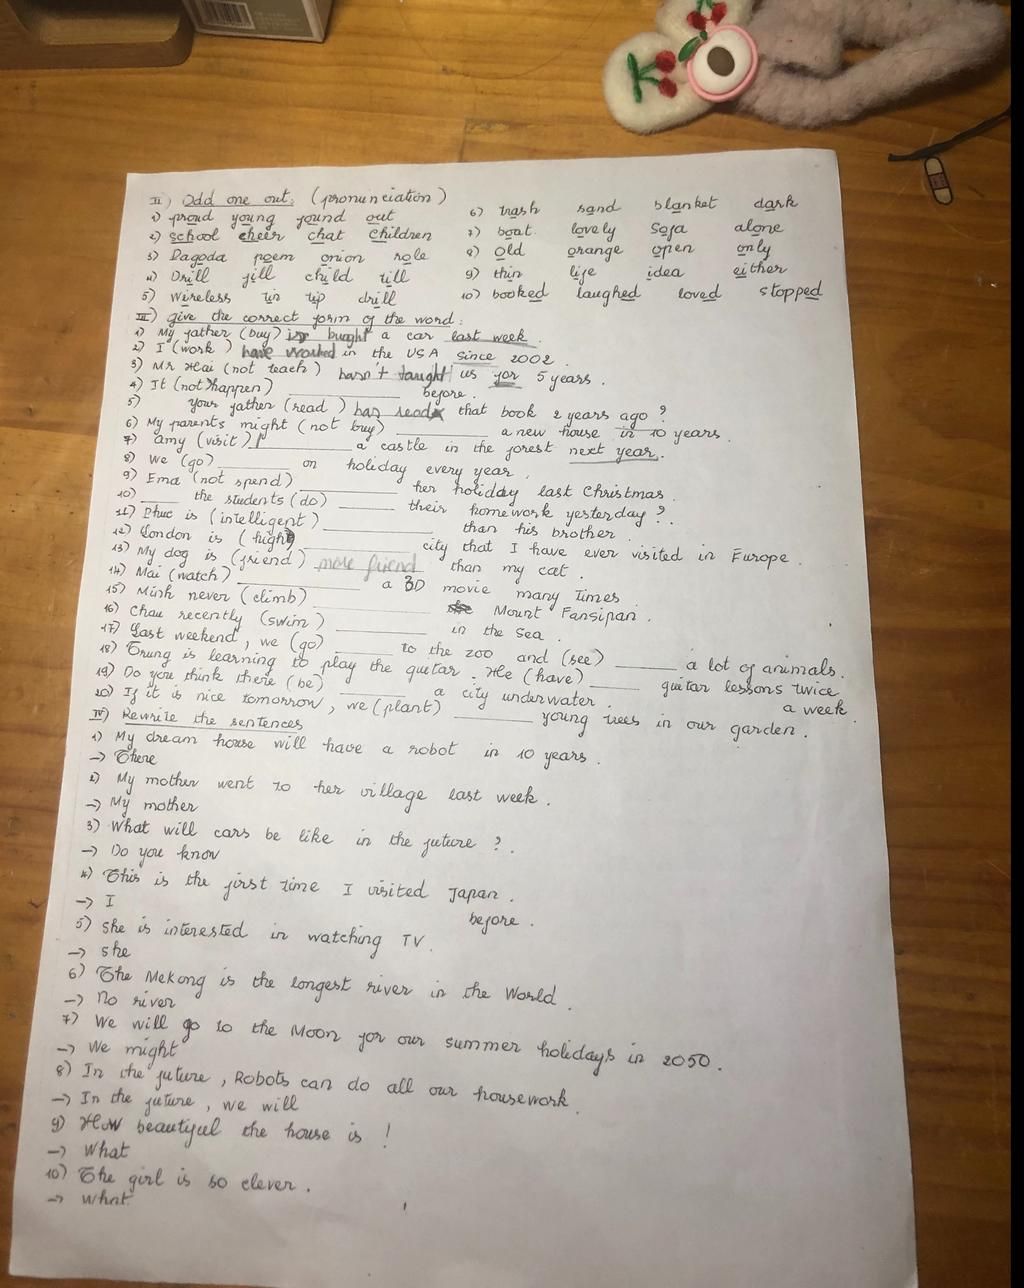 II) Odd one out: (pronunciation)
1) proud young found out
2) school cheer chat children
3) Pagoda poem onion role
4) Drill fill child till
5) wireless tip drill
6) trash sand blanket dark
7) boat lovely sofa alone
8) old orange open only
9) thin life idea either
10) booked laughed loved stopped
III) give the correct form of the word:
1) My father (buy) bught a car last week.
2) I (work) have worked in the USA since 2002.
3) Mr Hai (not teach) hasn't taught us for 5 years.
4) It (not happen) ________ before.
5) your father (read) has read that book 2 years ago?
6) My parents might (not buy) ________ a new house in 10 years.
7) Amy (visit) ________ a castle in the forest next year.
8) We (go) ________ on holiday every year.
9) Ema (not spend) ________ her holiday last Christmas.
10) ____ the students (do) ____ their homework yesterday?
11) Phuc is (intelligent) ________ than his brother.
12) London is (high) ________ city that I have ever visited in Europe.
13) My dog is (friend) more friend than my cat.
14) Mai (watch) ________ a 3D movie many times
15) Minh never (climb) ________ Mount Fansipan.
16) Chau recently (swim) ________ in the sea.
17) Last weekend, we (go) ____ to the zoo and (see) ____ a lot of animals.
18) Trung is learning to play the guitar. He (have) ____ guitar lessons twice a week
19) Do you think there (be) ____ a city underwater.
20) If it is nice tomorrow, we (plant) ________ young trees in our garden.
IV) Rewrite the sentences
1) My dream house will have a robot in 10 years.
→ There
2) My mother went to her village last week.
→ My mother
3) What will cars be like in the future?.
→ Do you know
4) This is the first time I visited Japan.
→ I before.
5) She is interested in watching TV.
→ She
6) The Mekong is the longest river in the World.
→ No river
7) We will go to the Moon for our summer holidays in 2050.
→ We might
8) In the future, Robots can do all our housework.
→ In the future, we will
9) How beautyful the house is!
→ What
10) The girl is so clever.
→ What